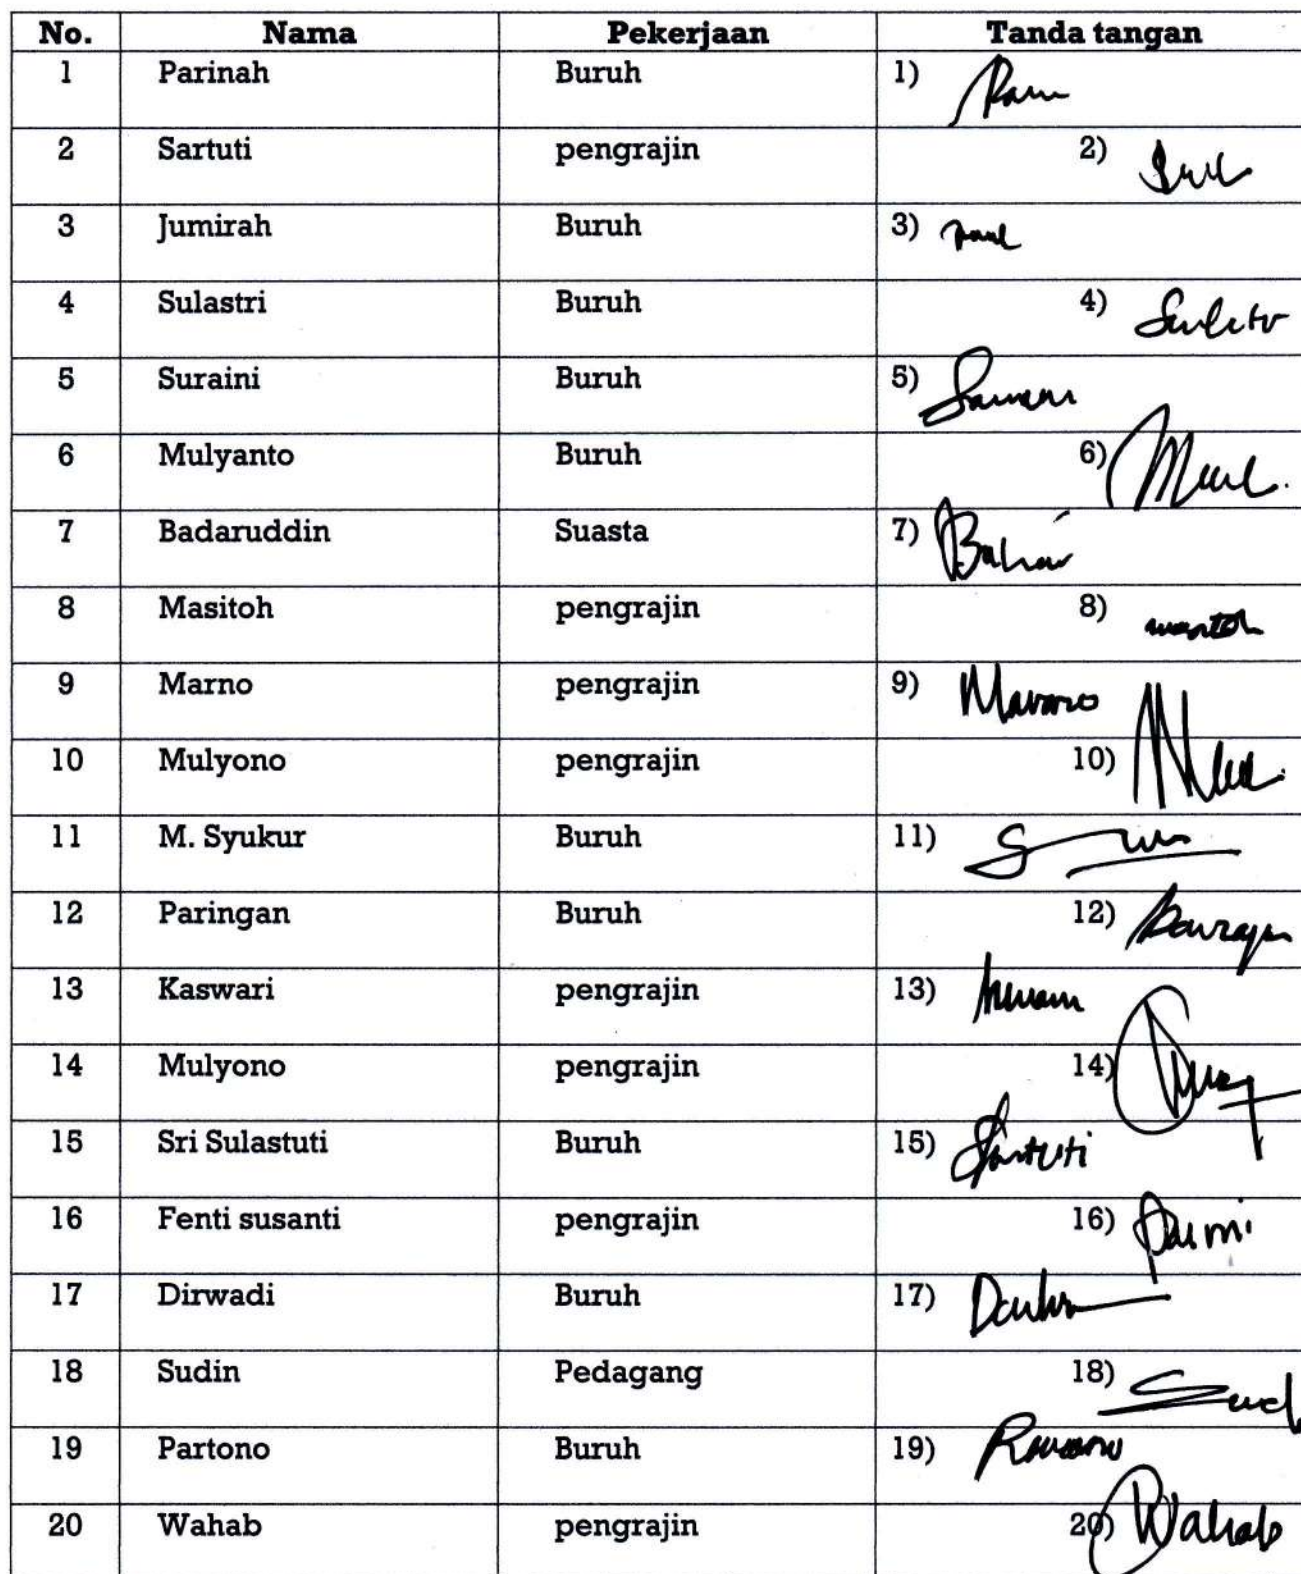 No. Nama Pekerjaan Tanda tangan
1 Parinah Buruh 1)
2 Sartuti pengrajin 2)
3 Jumirah Buruh 3)
4 Sulastri Buruh 4)
5 Suraini Buruh 5)
6 Mulyanto Buruh 6)
7 Badaruddin Suasta 7)
8 Masitoh pengrajin 8)
9 Marno pengrajin 9)
10 Mulyono pengrajin 10)
11 M. Syukur Buruh 11)
12 Paringan Buruh 12)
13 Kaswari pengrajin 13)
14 Mulyono pengrajin 14)
15 Sri Sulastuti Buruh 15)
16 Fenti susanti pengrajin 16)
17 Dirwadi Buruh 17)
18 Sudin Pedagang 18)
19 Partono Buruh 19)
20 Wahab pengrajin 20) Wahab